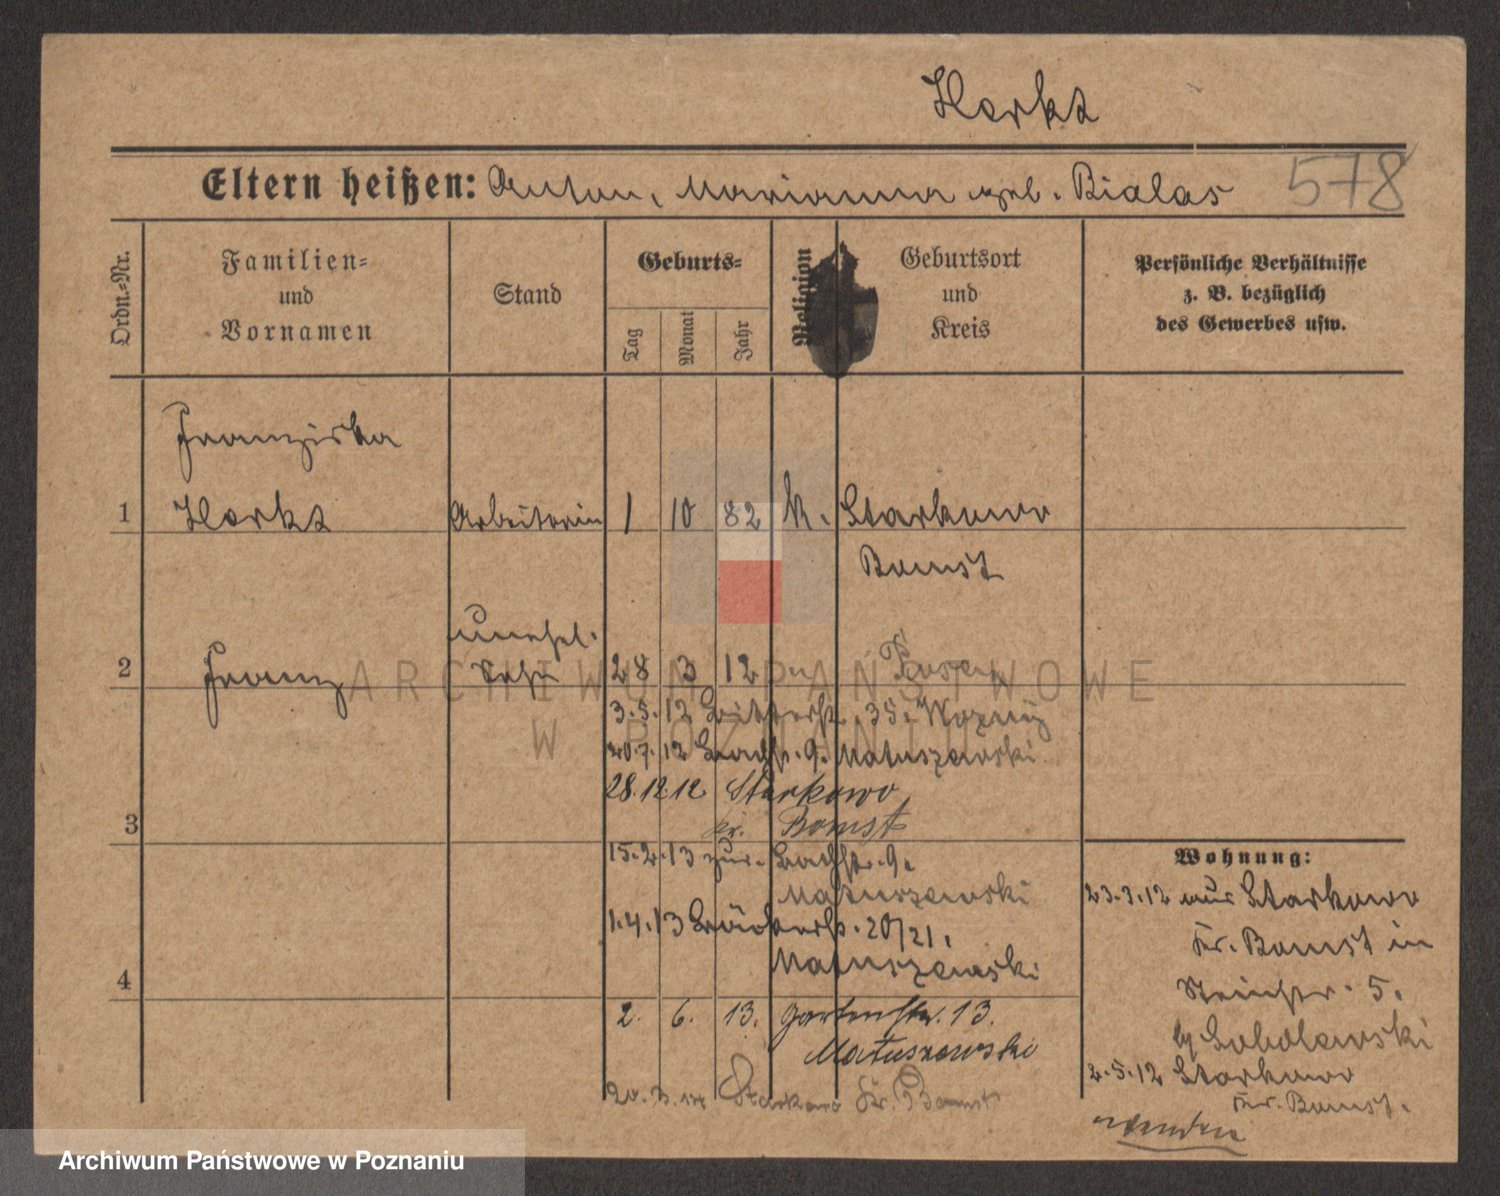 Herkt
Eltern heißen: Anton, Marianna geb. Bialas 578
Ordn.-Nr.
Familien-
und
Vornamen
Stand
Geburts-
Tag
Monat
Jahr
Religion
Geburtsort
und
Kreis
Persönliche Verhältnisse
z. B. bezüglich
des Gewerbes usw.
Franziska
1 Herkt Arbeiterin 1 10 82 k. Starkowo
Bomst
unehel.
2 Franz Sohn 28 3 12 Posen
3.5.12 35.
20.7.12 9. Matuszewski
28.12.12 Starkowo
3 Kr. Bomst
15.2.13 zur. 9.
Matuszewski
1.4.13 20/21.
Matuszewski
4
2. 6. 13. Gartenstr. 13.
Matuszewski
Starkowo Kr. Bomst
Wohnung:
23.3.12 aus Starkowo
Kr. Bomst in
5.
Sobolewski
2.5.12 Starkowo
Kr. Bomst.
wenden
ARCHIWUM PAŃSTWOWE
W POZNANIU
Archiwum Państwowe w Poznaniu